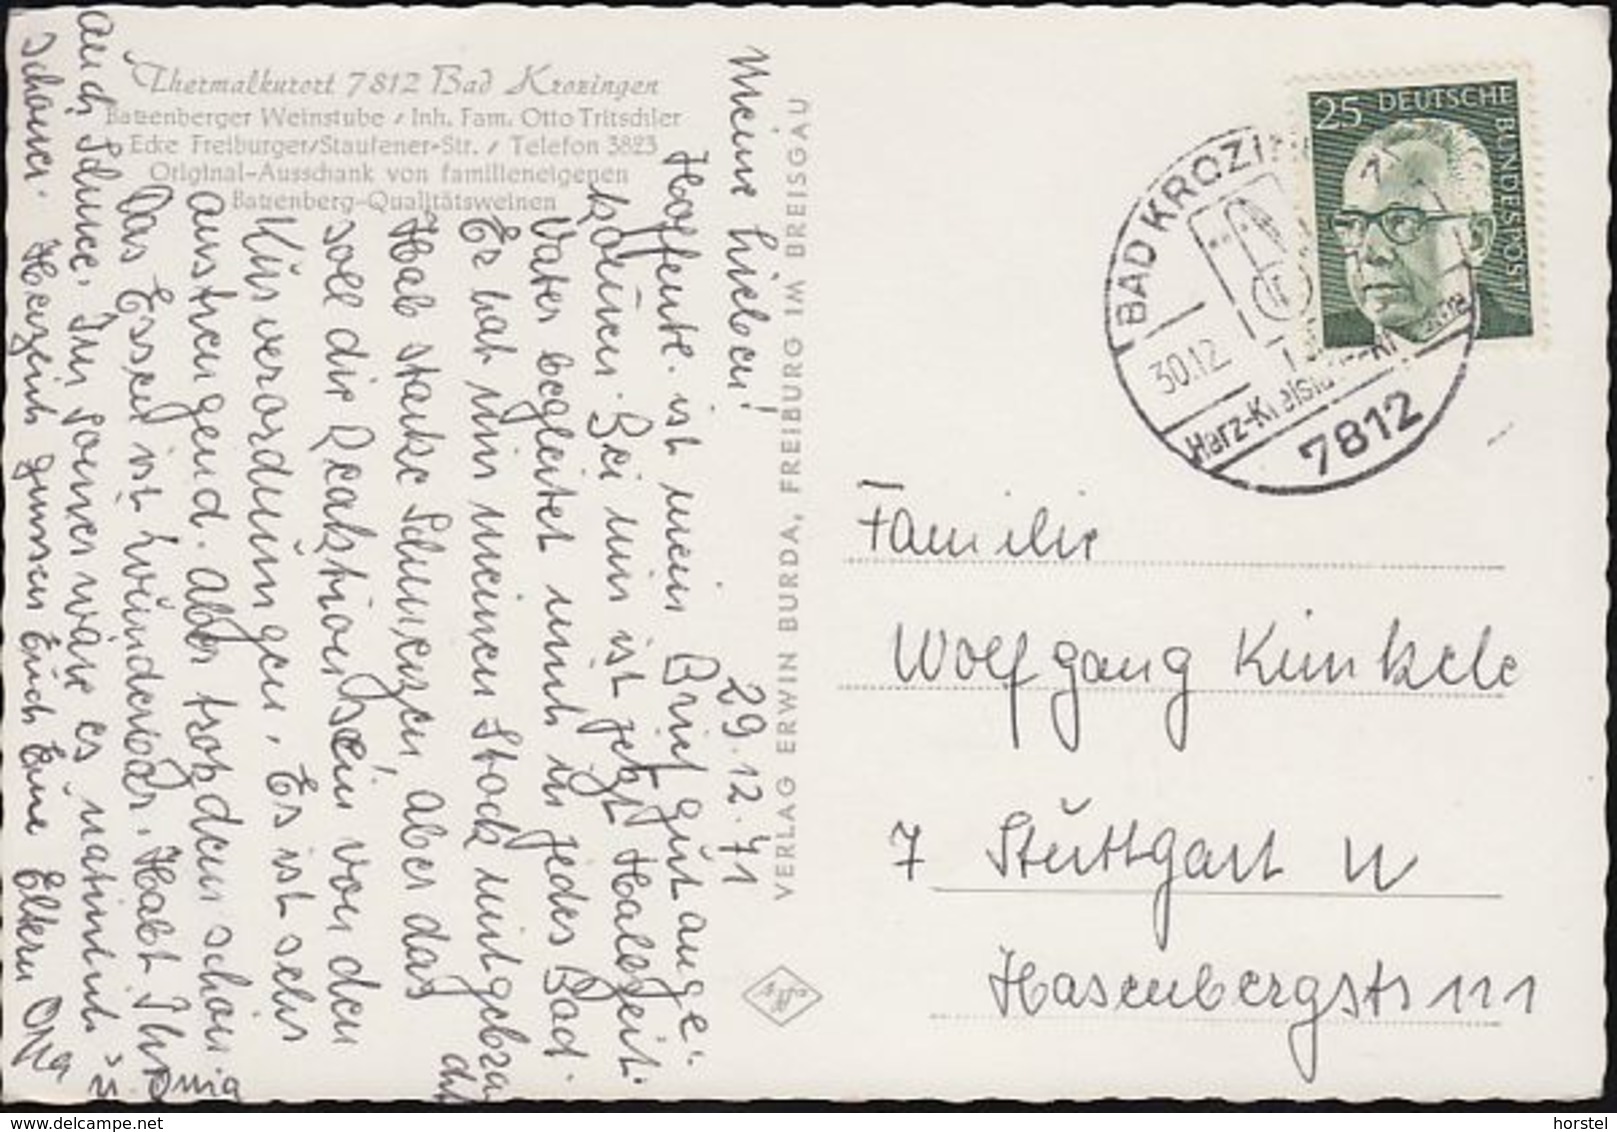 Thermalkurort 7812 Bad Krozingen
Batzenberger Weinstube / Inh. Fam. Otto Tritschler
Ecke Freiburger/Staufener-Str. / Telefon 3823
Original-Ausschank von familieneigenen
Batzenberg-Qualitätsweinen
29.12.71
Meine Lieben!
Hoffentl. ist mein Brief gut ange-
kommen. Bei mir ist jetzt Halbzeit.
Vater begleitet mich in jedes Bad.
Er hat mir meinen Stock mitgebra
cht
Hab starke Schmerzen, aber das
soll die Reaktion sein von den
Kurverordnungen. Es ist sehr
anstrengend. Aber trotzdem schön
Das Essen ist wunderbar. Habt Ihr
auch Schnee. Im Sommer wäre es natürlich
schöner. Herzlich grüssen Euch Eure Eltern Opa
u. Omia
VERLAG ERWIN BURDA, FREIBURG IM BREISGAU
25 DEUTSCHE BUNDESPOST
BAD KROZI
30.12.
Herz-Kreislauf
7812
Familie
Wolfgang Künkele
7 Stuttgart W
Hasenbergstr 111
horstel
www.delcampe.net